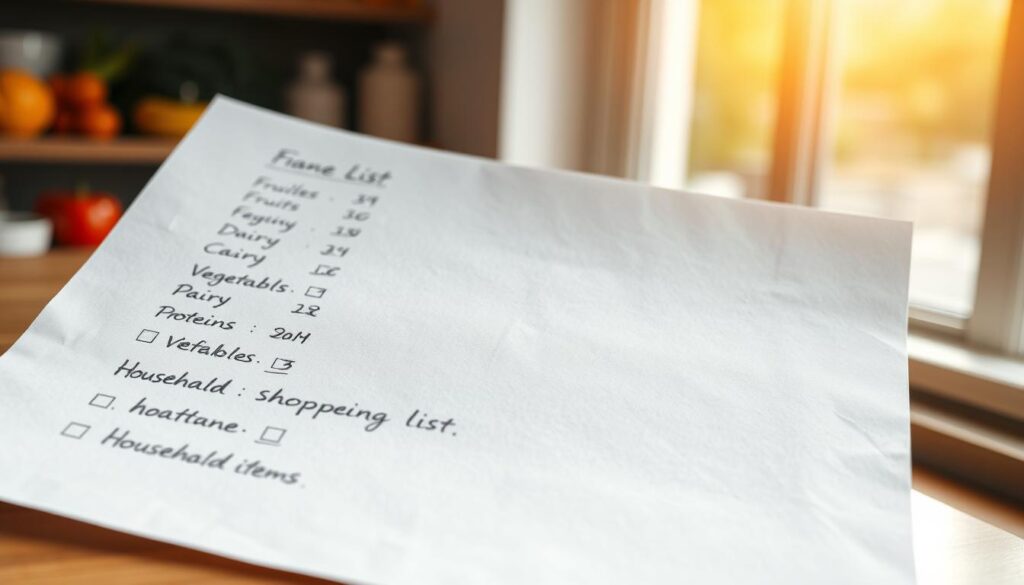 Fiane List
Fruiles . 39
Fruits 36
Feguny . 138
Dairy . 24
Cairy
Vegetabls.
Pairy 28
Proteins : 20H
Vefables. 3
Househald : shoppeing list.
hoattane.
Househald items.